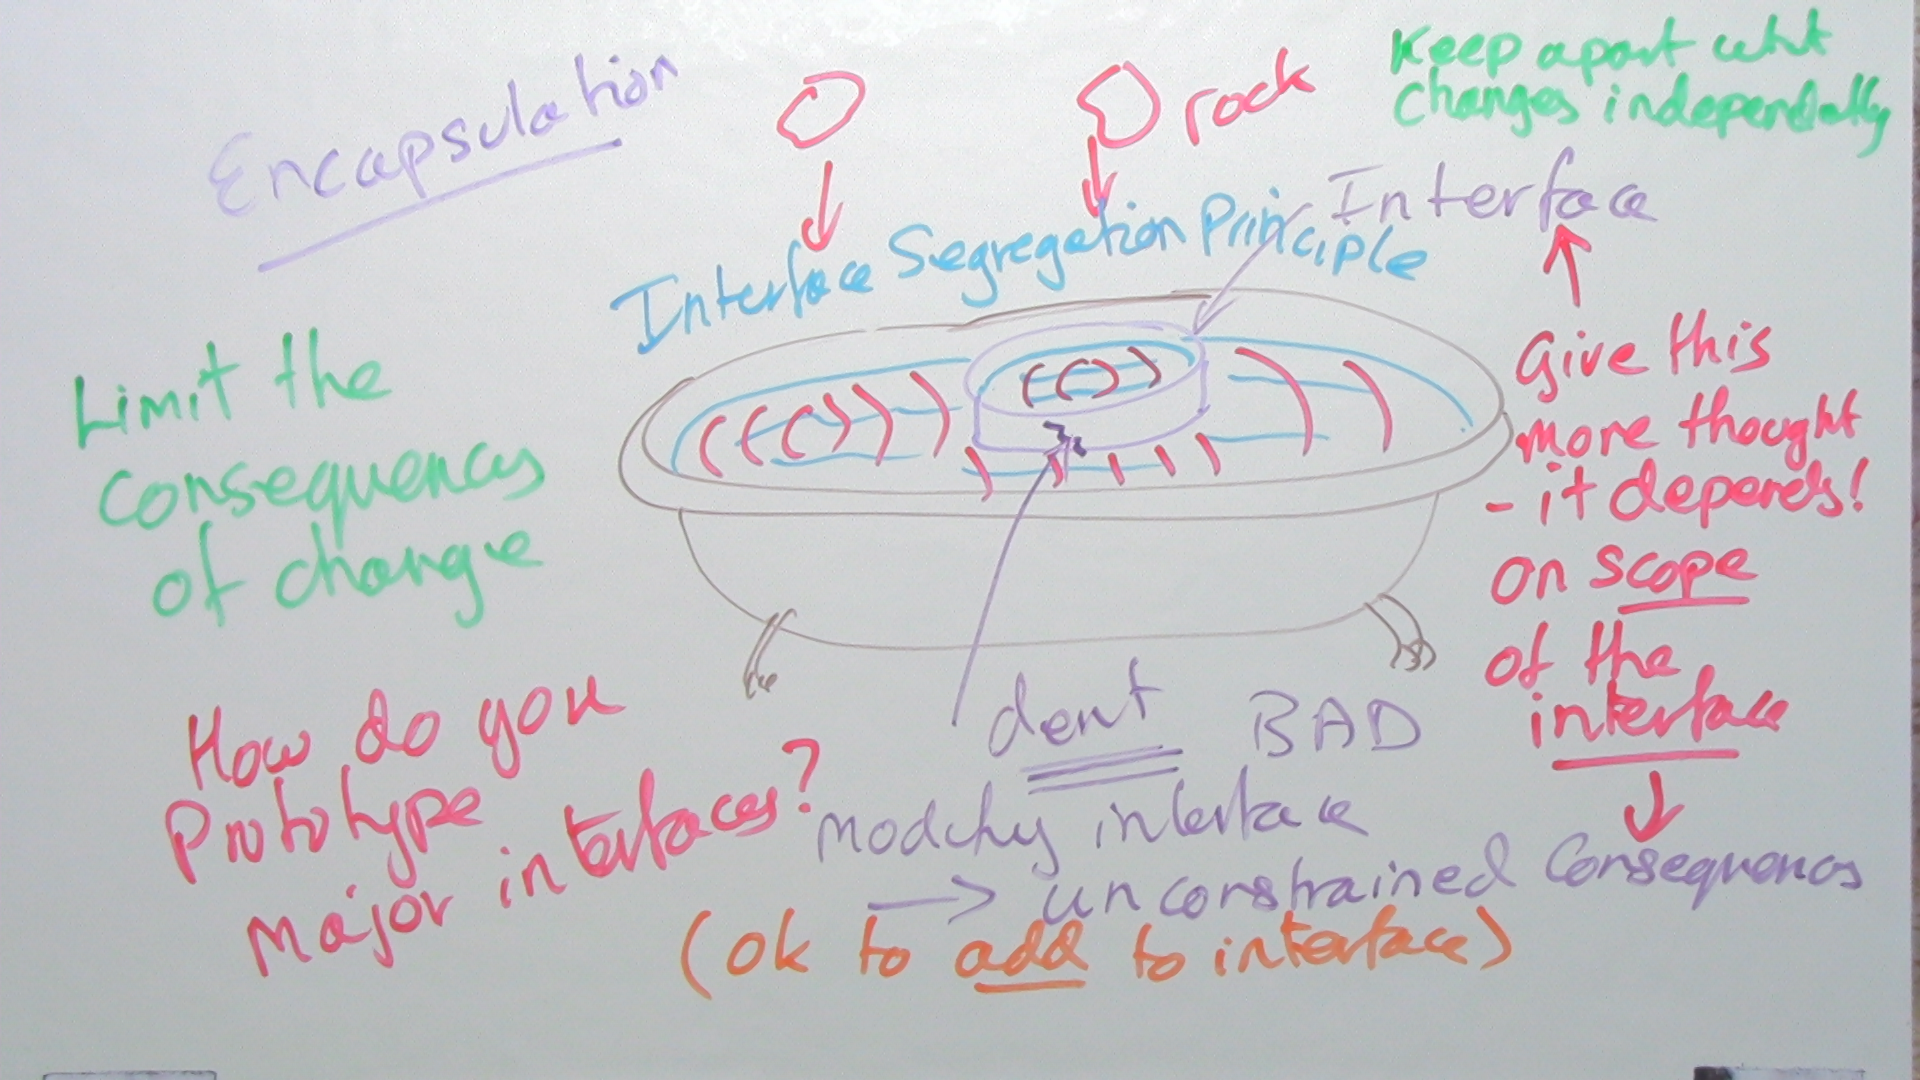 Encapsulation
rock
Keep apart what
changes independently
Interface
Interface Segregation Principle
Limit the
consequences
of change
Give this
more thought
- it depends!
on scope
of the
interface
How do you
Prototype
major interfaces?
dent BAD
modify interface
→ unconstrained consequences
(ok to add to interface)